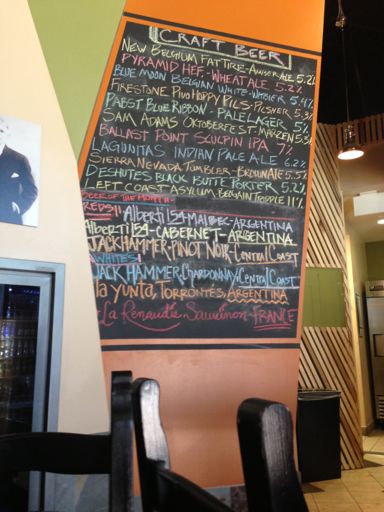 CRAFT BEER
NEW BELGIUM FAT TIRE - AMBER ALE 5.2%
PYRAMID HEF. - WHEAT ALE 5.2%
BLUE MOON BELGIAN WHITE - WITBIER 5.4%
FIRESTONE PIVO HOPPY PILS - PILSNER 5.3%
PABST BLUE RIBBON - PALE LAGER 5%
SAM ADAMS OKTOBERFEST - MARZEN 5.3%
BALLAST POINT SCULPIN IPA 7%
LAGUNITAS INDIAN PALE ALE 6.2%
SIERRA NEVADA TUMBLER - BROWN ALE 5.5%
DESHUTES BLACK BUTTE PORTER 5.2%
LEFT COAST ASYLUM BELGAIN TRIPPLE 11%
OF THE MONTH -
REDS!! Alberti 154 - MALBEC - ARGENTINA
Alberti 154 - CABERNET - ARGENTINA
JACKHAMMER - PINOT NOIR - Central Coast
WHITES!
JACKHAMMER, Chardonnay, Central COAST
la yunta, TORRONTES, ARGENTINA
La Renaudie, Sauvinon - FRANCE